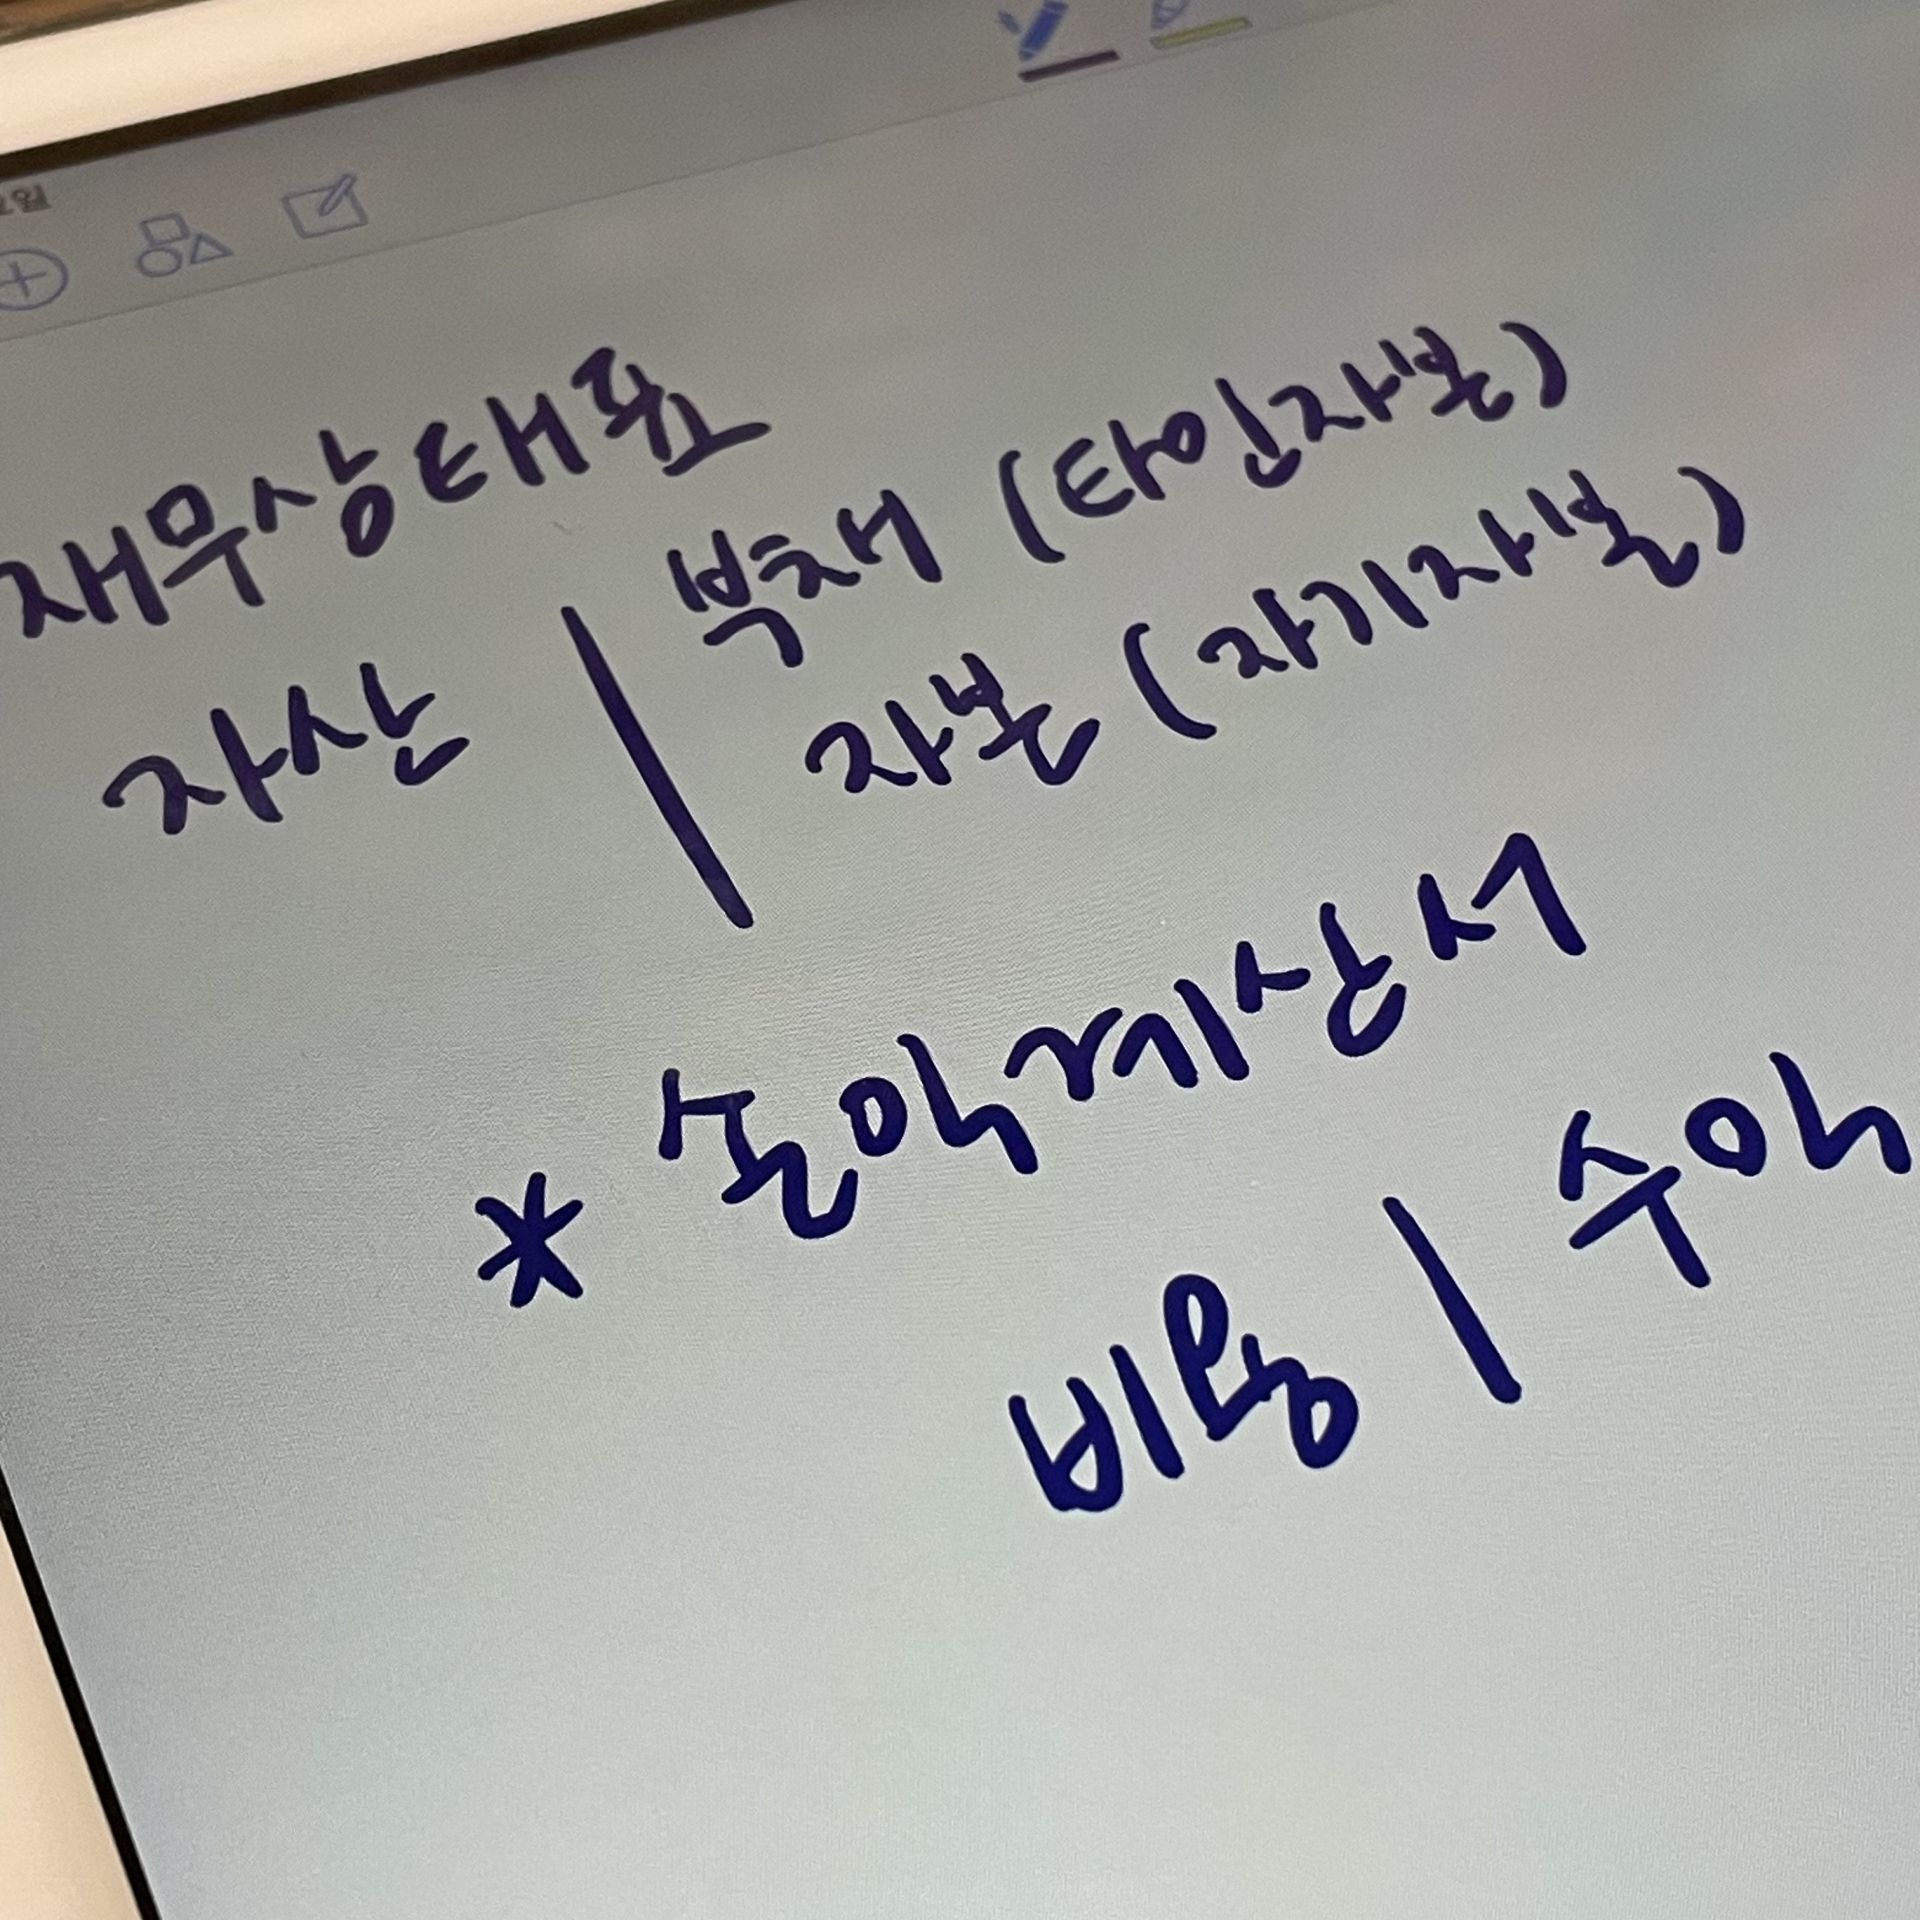 요일
재무상태표
자산 | 부채 (타인자본)
자본 (자기자본)
* 손익계산서
비용 | 수익